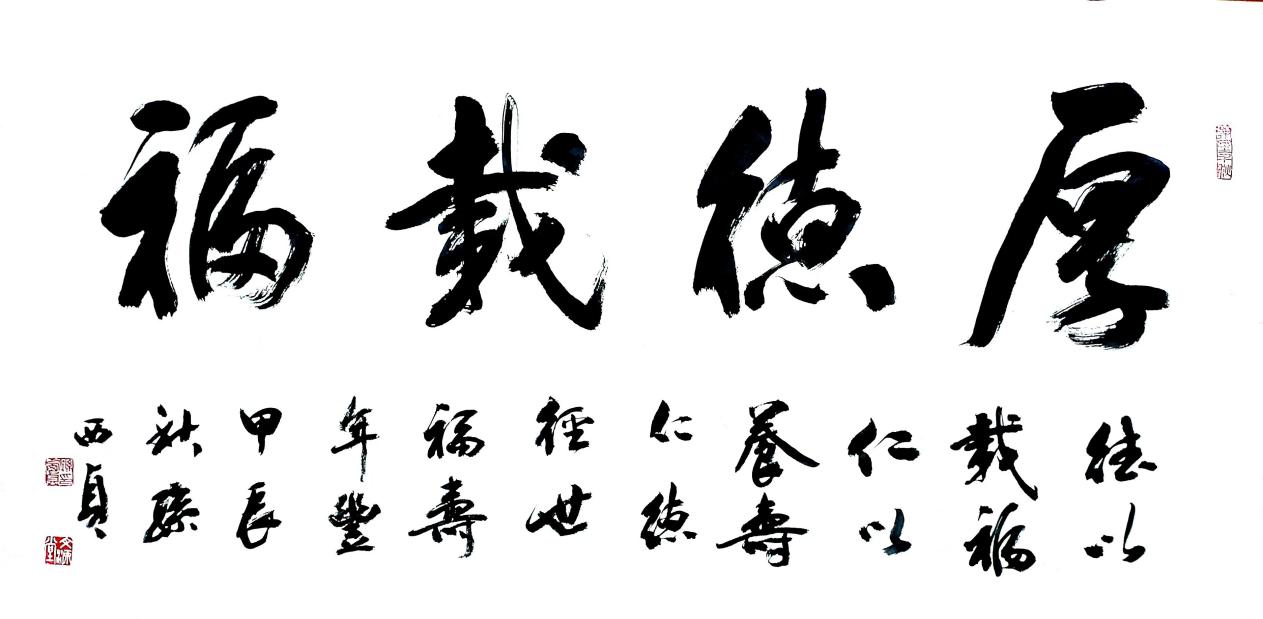 厚德載福
德以
載福
仁以
養壽
仁德
徑世
福壽
年豐
甲辰
秋
西貞